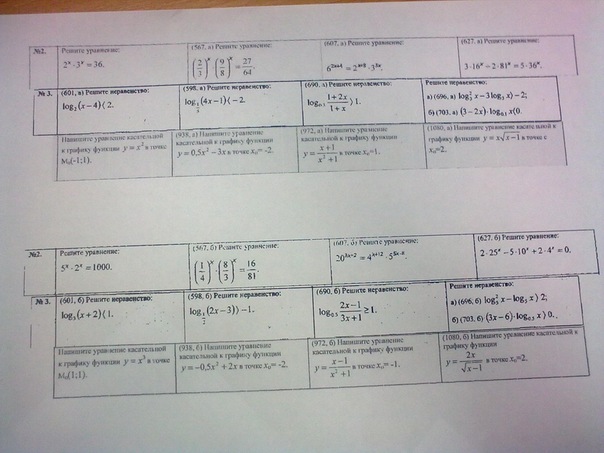 №2.
Решите уравнение:
2ˣ · 3ˣ = 36.
(567, а) Решите уравнение:
(2/3)ˣ · (9/8)ˣ = 27/64.
(607, а) Решите уравнение:
(627. а) Решите уравнение:
3·16ˣ − 2·81ˣ = 5·36ˣ.
№ 3.
(601, а) Решите неравенство:
log₃(x − 4)⟨2.
(598, а) Решите неравенство:
(4x − 1)⟨−2.
(690, а) Решите неравенство:
(1 + 2x)/(1 + x) ⟩1.
Решите неравенство:
а) (696, а)
б) (703, а) (3 − 2x)
Напишите уравнение касательной
к графику функции y = x³ в точке
M₀(-1;1).
(938, а) Напишите уравнение
касательной к графику функции
y = 0,5x² − 3x в точке x₀= -2.
(972, а) Напишите уравнение
касательной к графику функции
y = (x + 1)/(x² + 1) в точке x₀=1.
(1080, а) Напишите уравнение касательной к
графику функции y = x√(x − 1) в точке с
x₀=2.
№2.
Решите уравнение:
5ˣ · 2ˣ = 1000.
(567, б) Решите уравнение:
(1/4)ˣ · (8/3)ˣ = 16/81.
(607, б) Решите уравнение:
(627. б) Решите уравнение:
2·25ˣ − 5·10ˣ + 2·4ˣ = 0.
№ 3.
(601, б) Решите неравенство:
log₃(x + 2)⟨1.
(598, б) Решите неравенство:
(2x − 3)⟩−1.
(690, б) Решите неравенство:
(2x − 1)/(3x + 1) ≥ 1.
Решите неравенство:
а) (696, б)
б) (703, б) (3x − 6)
Напишите уравнение касательной
к графику функции y = x³ в точке
M₀(1;1).
(938, б) Напишите уравнение
касательной к графику функции
y = −0,5x² + 2x в точке x₀= -2.
(972, б) Напишите уравнение
касательной к графику функции
y = (x − 1)/(x² + 1) в точке x₀= -1.
(1080, б) Напишите уравнение касательной к
графику функции
y = 2x/√(x − 1) в точке x₀=2.